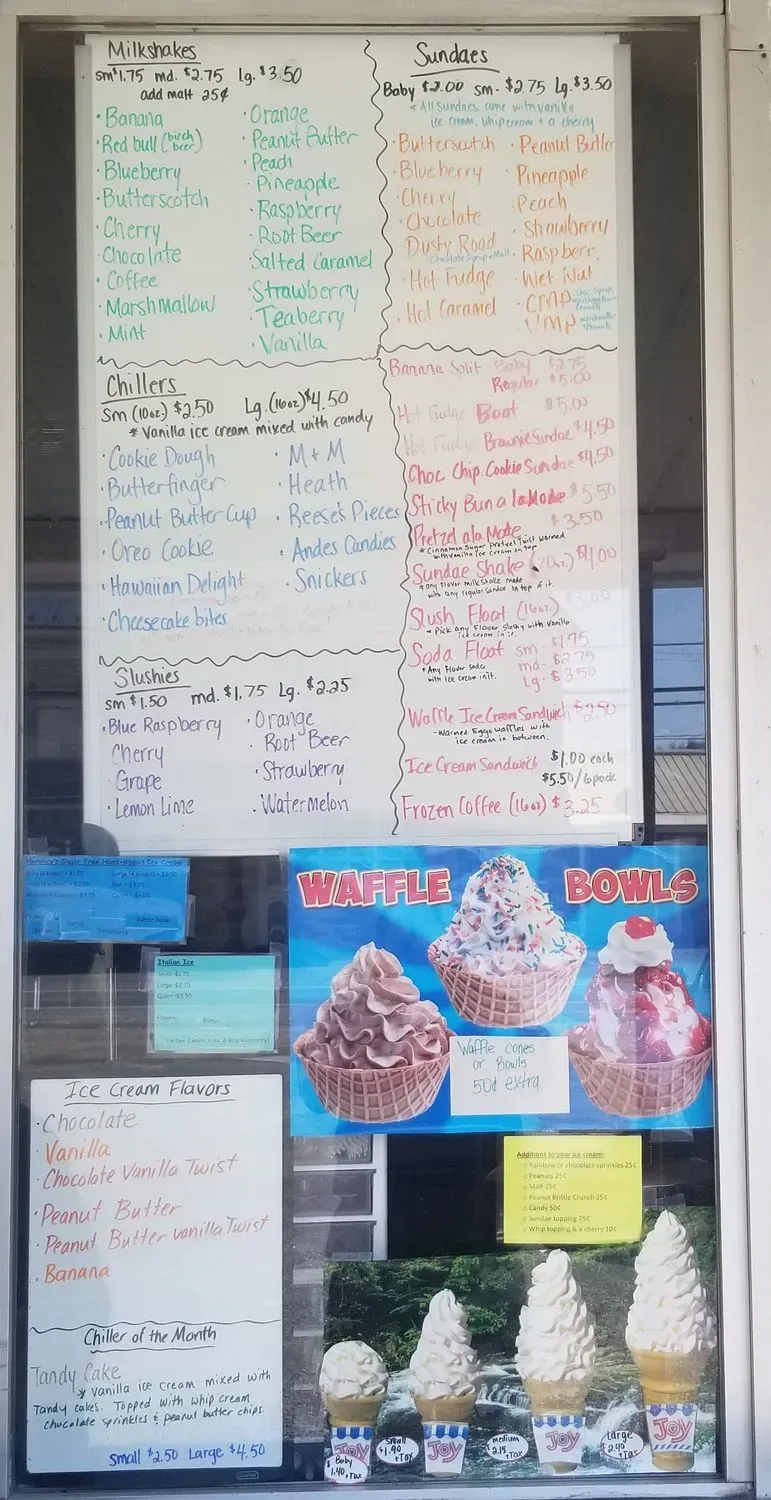 Milkshakes
sm $1.75 md. $2.75 lg. $3.50
add malt 25¢
· Banana
· Red bull (birch beer)
· Blueberry
· Butterscotch
· Cherry
· Chocolate
· Coffee
· Marshmallow
· Mint
· Orange
· Peanut Butter
· Peach
· Pineapple
· Raspberry
· Root Beer
· Salted Caramel
· Strawberry
· Teaberry
· Vanilla
Sundaes
Baby $2.00 sm- $2.75 Lg. $3.50
* All Sundaes come with vanilla
ice cream, whip cream + a cherry
· Butterscotch
· Blueberry
· Cherry
· Chocolate
· Dusty Road
- Chocolate Syrup + Malt
· Hot Fudge
· Hot Caramel
· Peanut Butter
· Pineapple
· Peach
· Strawberry
· Raspberr
· Wet Nut
· CMP choc. syrup
marshmallow
Peanuts
· VMP marshmallow
+ Peanuts
Chillers
sm (10oz.) $2.50 Lg. (16oz) $4.50
* Vanilla ice cream mixed with candy
· Cookie Dough
· Butterfinger
· Peanut Butter Cup
· Oreo Cookie
· Hawaiian Delight
· Cheesecake bites
· M + M
· Heath
· Reese's Pieces
· Andes Candies
· Snickers
Banana Split Baby $2.75
Regular $5.00
Hot Fudge Boat $5.00
Hot Fudge Brownie Sundae $4.50
Choc Chip Cookie Sundae $4.50
Sticky Bun a la Mode $5.50
Pretzel ala Mode $3.50
* Cinnamon Sugar Pretzel Twist warmed
with vanilla ice cream on top
Sundae Shake (20oz.) $4.00
* any flavor milkshake made
with any regular sundae on top of it.
Slush Float (16oz) $3.00
* Pick any Flavor Slushy with Vanilla
ice cream in it.
Soda Float sm - $1.75
* Any Flavor soda
with ice cream in it.
md - $2.75
Lg - $3.50
Waffle Ice Cream Sandwich $2.50
- Warmed Eggo waffles with
ice cream in between.
Ice Cream Sandwich $1.00 each
$5.50/6 pack
Frozen Coffee (16oz) $3.25
Slushies
sm $1.50 md. $1.75 Lg. $2.25
· Blue Raspberry
Cherry
· Grape
· Lemon Lime
· Orange
Root Beer
· Strawberry
· Watermelon
Hershey's Sugar Free Hand-dipped Ice Cream
Butter Pecan
Italian Ice
Small-$1.75
Large-$2.75
Quart-$5.50
Flavors:
Mango
WAFFLE BOWLS
Waffle cones
or Bowls
50¢ extra
Ice Cream Flavors
· Chocolate
· Vanilla
· Chocolate Vanilla Twist
· Peanut Butter
· Peanut Butter vanilla Twist
· Banana
Chiller of the Month
Tandy Cake
* Vanilla ice cream mixed with
Tandy cakes. Topped with whip cream
chocolate sprinkles & peanut butter chips.
Small $2.50 Large $4.50
Quartet
Additions to your ice cream:
o Rainbow or chocolate sprinkles 25¢
o Peanuts 25¢
o Malt 25¢
o Peanut Brittle Crunch 25¢
o Candy 50¢
o Sundae topping 75¢
o Whip topping & a cherry 10¢
JOY
JOY
JOY
JOY
Baby
1.40 +Tax
Small
$1.90
+Tax
medium
2.15 +Tax
Large
2.40 +Tax